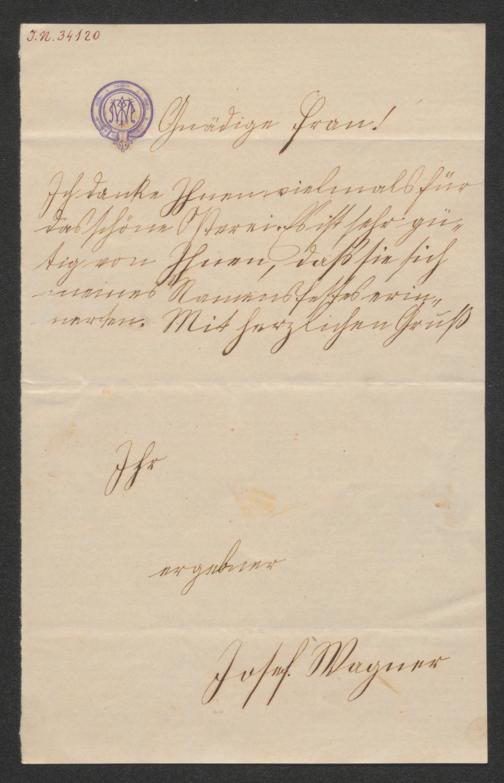 J.N. 34120
Gnädige Frau!
Ich danke Ihnen vielmals für
das schöne Osterei. Es ist sehr gü-
tig von Ihnen, daß sie sich
meines Namensfestes erin-
nerten. Mit herzlichen Gruß
Ihr
ergebner
Josef Wagner